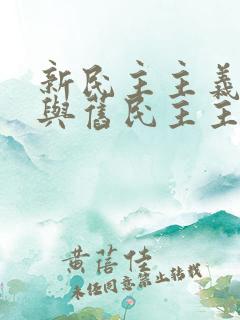 新民主主義
與舊民主主
黄蓓佳
未经同意禁止转载